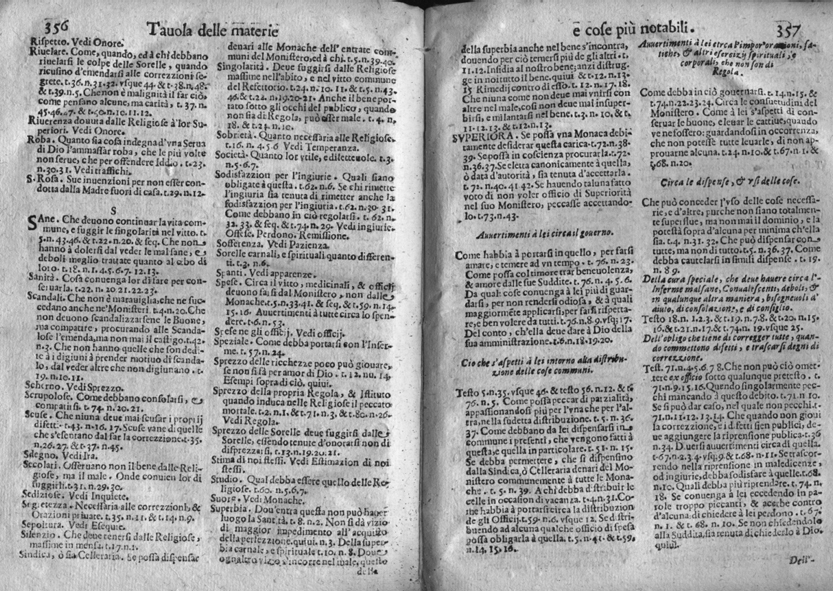 356 Tauola delle materie
Rispetto. Vedi Onore.
Riuelare. Come, quando, ed à chi debbano
riuelarsi le colpe delle Sorelle, quando
ricusino d'emendarsi alle correzzioni se-
grete. t.36. n.31.32. vsque 44 & t.38.n.48.
& t.39.n.5. Che non è malignità il far ciò,
come pensano alcune, ma carità, t. 37. n.
45.46.47. & t.40.n.10.11.12.
Riuerenza deuono dalle Religiose à lor Su-
periori. Vedi Onore.
Roba. Quanto sia cosa indegna d'vna Serua
di Dio l'ammassar roba, che le più volte
non serue, che per offender Iddio. t.23.
n.30.31. Vedi traffichi.
S. Rosa. Sue inuenzioni per non esser con-
dotta dalla Madre fuori di casa. t.29. n.12.
S
SAne. Che deuono continuar la vita com-
mune, e suggir le singolarità nel vitto. t.
5.n.43.46.& t.22.n.20. & seq. Che non
hanno à dolersi dal veder le mal sane, e
deboli meglio trattate quanto al cibo di
loro. t.18. n.1. 4.5.6.7. 12.13.
Sanità. Cosa conuenga lor di fare per con-
seruarla. t.22. n. 20 21.22.25.
Scandali. Che non è marauiglia, che ne suc-
cedano anche ne' Monisteri. t.4.n.20. Che
non deuono scandalizzarsene le Buone,
ma compatire, procurando alle Scanda-
lose l'emenda, ma non mai il castigo. t.42.
n.3. Che non hanno quelle che son dedi-
te a i digiuni à prender motiuo di scanda-
lo, dal veder altre che non digiunano. t.
19. n.10.11.
Scherno. Vedi Sprezzo.
Scrupolose. Come debbano consolarsi, e
compatirsi t. 74. n. 20.21.
Scuse. Che niuna deue mai scusar i proprij
difetti. t.43. n.16. 17. Scuse vane di quelle
che s'esentano dal far la correzzione. t.35.
n.26.27. & t.37. n.45.
Sdegno. Vedi Ira.
Secolari. Osseruano non il bene dalle Reli-
giose, ma il male. Onde conuien lor di
suggirli. t.31. n.29.30.
Sediziose. Vedi Inquiete.
Segretezza. Necessaria alle correzzioni, &
Orazioni priuate. t.35. n.21. & t.14. n.9.
Sepoltura. Vedi Esequie.
Silenzio. Che deue tenersi dalle Religiose,
massime in mensa. t.17.n.1.
Sindica, ò sia Celleraria. Se possa dispensar
denari alle Monache dell'entrate com-
muni del Monistero, ed à chi. t.5.n.39.40.
Singolarità. Deue suggirsi dalle Religiose
massime nell'abito, e nel vitto commune
del Refettorio. t.24. n.10. 11. & t.5.n.43.
46.& t.22. n.19.20-21. Anche il bene por-
tato sotto gli occhi del publico, quando
non sia di Regola, può esser male. t. 4. n.
18. & t.24. n.10.
Sobrietà. Quanto necessaria alle Religiose.
t.16. n.4.5.6 Vedi Temperanza.
Società. Quanto lor vtile, e diletteuole. t.3.
n.5-6.7.
Sodisfazzion per l'ingiurie. Quali siano
obligate à questa. t.62.n.6. Se chi rimette
l'ingiuria sia tenuta di rimetter anche la
sodisfazzion per l'ingiuria. t.62.n.30-31.
Come debbano in ciò regolarsi. t. 62. n.
32. 33. & seq. & t.74. n.29. Vedi ingiurie.
Offese. Perdono. Remissione.
Sofferenza. Vedi Pazienza.
Sorelle carnali, e spirituali quanto differen-
ti. t.3. n.6.
Spanti. Vedi apparenze.
Spese. Circa il vitto, medicinali, & officij
deuono farsi dal Monistero, non dalle
Monache. t.5.n.33.41. & seq. & t.59. n.14.
15.16. Auuertimenti à tutte circa lo spen-
dere. t.6.n.53.
Spese ne gli officij. Vedi officij.
Speziale. Come debba portarsi con l'Infer-
me. t.57. n.24.
Sprezzo delle ricchezze poco può giouare,
se non si fà per amor di Dio. t. 12. nu. 14.
Esempi sopra di ciò, quiui.
Sprezzo della propria Regola, & Istituto
quando induca nelle Religiose il peccato
mortale. t.2. n.1. & t.71. n.3. & t.80. n.26-
Vedi Regola.
Sprezzo delle Sorelle deue suggirsi dalle
Sorelle, essendo tenute d'onorarsi non di
disprezzarsi. t.13.n.19.20.21.
Stima di noi stessi. Vedi Estimazion di noi
stessi.
Studio. Qual debba esser quello delle Re-
ligiose. t.60. n.5.6.7.
Suore. Vedi Monache.
Superbia. Dou'entra questa non può hauer
luogo la Santità. t.8. n.2. Non si dà vizio
di maggior impedimento all'acquisto
della perfezzione. quiui. n.3. Della super-
bia carnale, e spirituale t.10. n.8. Doue
ogn'altro vizio s'incorre nel male, questo
della
e cose più notabili. 357
della superbia anche nel bene s'incontra,
douendo per ciò temersi più de gli altri. t.
11.12. Insidia al nostro bene; anzi distrug-
ge noi tutto il bene. quiui, & t.12. n.13-
15 Rimedij contro di esso. t.12. n.17.18.
Che niuna come non deue mai vnirsi con
altre nel male, così non deue mai insuper-
birsi, e millantarsi nel bene. t.3. n. 10. &
11-12.13. & t.12.n.13.
SUPERIORA. Se possa vna Monaca debi-
tamente desiderar questa carica. t.72.n.38-
39. Se possa in coscienza procurarla. t.72.
n.36.37. Se eletta canonicamente à quella,
ò data d'autorità, sia tenuta d'accettarla.
t. 71. n.40. 41 42. Se hauendo taluna fatto
voto di non voler officio di Superiorità
nel suo Monistero, peccasse accettando-
lo. t.73.n.43.
Auuertimenti à lei circa il gouerno.
Come habbia à portarsi in quello, per farsi
amare, e temere ad vn tempo. t. 76. n. 23.
Come possa coltiuare trar beneuolenza,
& amore dalle sue Suddite. t.76.n. 4. 5. 6.
Da qual' cose conuenga à lei più di guar-
darsi, per non rendersi odiosa, & à quali
maggiormẽte applicarsi; per farsi rispetta-
re, e ben volere da tutti. t.76.n.8.9 vsq;17.
Del conto, ch'ella deue dare à Dio della
sua amministrazione. t.6.n.18.19.20.
Ciò che s'aspetti à lei intorno alla distribu-
zione delle cose communi.
Testo 5.n.35. vsque 46 & testo 56. n.12. & 6
76. n. 5. Come possa peccar di parzialità,
appassionandosi più per l'vna che per l'al-
tra, nella sudetta distribuzione. t. 5. n. 36.
37. Come debbano da lei dispensarsi in
commune i presenti, che vengono fatti à
questa, e quella in particolare. t. 51. n. 15.
Se debba permettere, che si dispensino
dalla Sindica, ò Celleraria denari del Mo-
nistero communemente à tutte le Mona-
che. t. 5. n.39. A chi debba distribuir le
celle in occasion di vacanza. t.4.n.31. Co-
me habbia à portarsi circa la distribuzion
de gli Officij. t.59. n.6. vsque 12. Se distri-
buendo ad alcuna qualche officio di spesa
possa obligarla à quella. t.5. n.41. & t.59.
n.14. 15. 16.
Auuertimenti à lei circa l'imper'orazioni, fa-
tiche, & altri esercizij spirituali, e
corporali, che non son di
Regola.
Come debba in ciò gouernarsi. t.24.n.15. &
t.74.n.22.23.24. Circa le consuetudini del
Monistero. Come à lei s'aspetti di con-
seruar le buone, e leuar le cattiue, quando
ve ne fossero: guardandosi in occorrenza,
che non potesse tutte leuarle, di non ap-
prouarne alcuna. t.24. n.10. & t.67. n.1. &
t.68. n.20.
Circa le dispense, & vsi delle cose.
Che può conceder l'vso delle cose necessa-
rie, e d'altre, purche non siano totalmen-
te superflue, ma non mai il dominio, e la
potestà sopra d'alcuna per minima ch'ella
sia. t.4. n.31. 32. Che può dispensar con
tutte, ma non di tutto. t.5. n.36. 37. Come
debba cautelarsi in simili dispense. t.19.
n. 8 9.
Della cura speciale, che deue hauere circa l'
Inferme malsane, Conualescenti, deboli, &
in qualunque altra maniera, bisogneuoli d'
aiuto, di consolazione, e di consiglio.
Testo 18. n.1. 2.3. & t.19. n. 1.& t.20. n.10. n. 15.
16.& t.21. n.17. & t.74. n. 19. vsque 25.
Dell'obligo che tiene di corregger tutte, quan-
do commettono difetti, e trascorsi degni di
correzzione.
Test. 71. n.4. 5. 6 7 8. Che non può ciò omet-
tere ex officio sotto qualunque pretesto. t.
71.n.9.15.16. Quando singolarmente pec-
chi mancando à questo debito. t.71.n.10.
Se si può dar caso, nel qual non pecchi. t.
71.n.11-12. 13. 14. Che quando non gioui
la correzzione, e i difetti sien publici, de-
ue aggiungere la riprensione publica. t.36
n.34. Diuersi auuertimenti circa di quella.
t.68. n.2-3.4. vsq;9.& t.68. n.11. Se trascor-
rendo nella riprensione in maledicenze,
od ingiurie, debba sodisfare à quelle. t.68.
n.10. Quali debba più riprendere. t.74. n.
18. Se conuenga à lei eccedendo in pa-
role troppo piccanti, & acerbe contro
d'alcuna di chiedere à lei perdono. t.67.
n. 1. & t. 68. n. 10. Se non chiedendolo
alla Suddita, sia tenuta di chiederlo à Dio.
quiui.
Dell'-